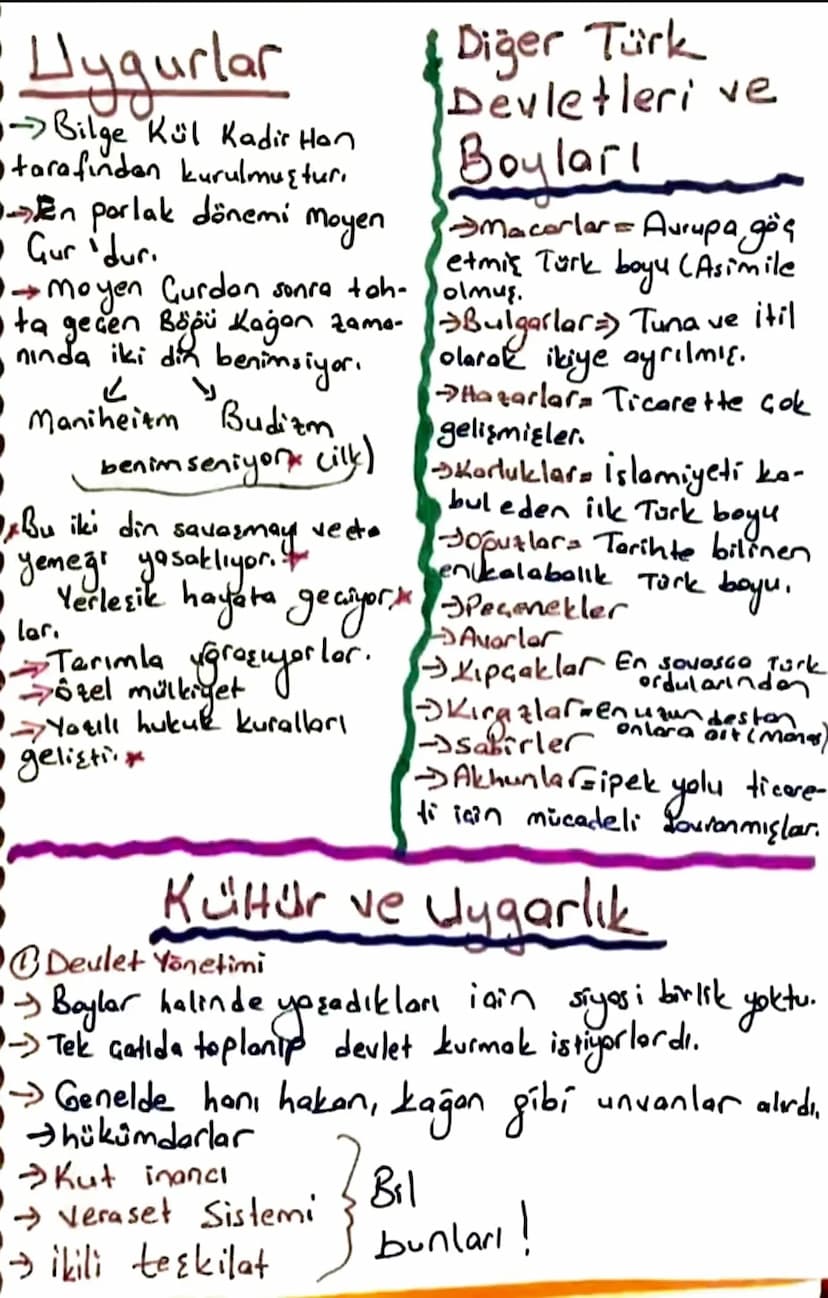 Uygurlar
→ Bilge Kül Kadir Han
tarafından kurulmuştur.
→ En parlak dönemi Moyen
Çur 'dur.
→ Moyen Çurdan sonra tah-
ta geçen Böğü Kağan zama-
nında iki din benimsiyor.
Maniheizm Budizm
benimseniyor* (ilk)
*Bu iki din savaşmay ve eta
yemeği yasaklıyor.*
Yerleşik hayata geçiyor*
lar.
→ Tarımla uğraşıyorlar.
→ özel mülkiyet
→ Yazılı hukuk kuralları
gelişti.*
Diğer Türk
Devletleri ve
Boyları
→ Macarlar = Avrupa, göç
etmiş Türk boyu (Asimile
olmuş.
→ Bulgarlar => Tuna ve itil
olarak ikiye ayrılmış.
→ Hazarlar = Ticarette çok
gelişmişler.
→ Karluklar = İslamiyeti ka-
bul eden ilk Türk boyu
→ Oğuzlar = Tarihte bilinen
en kalabalık Türk boyu.
→ Peçenekler
→ Avarlar
→ Kıpçaklar En savaşçı Türk
ordularından
→ Kırgızlar = en uzun destan
onlara ait (Manas)
→ Sabirler
→ Akhunlar = ipek yolu ticare-
ti için mücadeli davranmışlar.
Kültür ve Uygarlık
① Devlet Yönetimi
→ Boylar halinde yaşadıkları için siyasi birlik yoktu.
→ Tek çatıda toplanıp devlet kurmak istiyorlardı.
→ Genelde hanı hakan, kağan gibi unvanlar alırdı.
→ hükümdarlar
→ Kut inancı
→ Veraset Sistemi
→ ikili teşkilat
Bil
bunları!